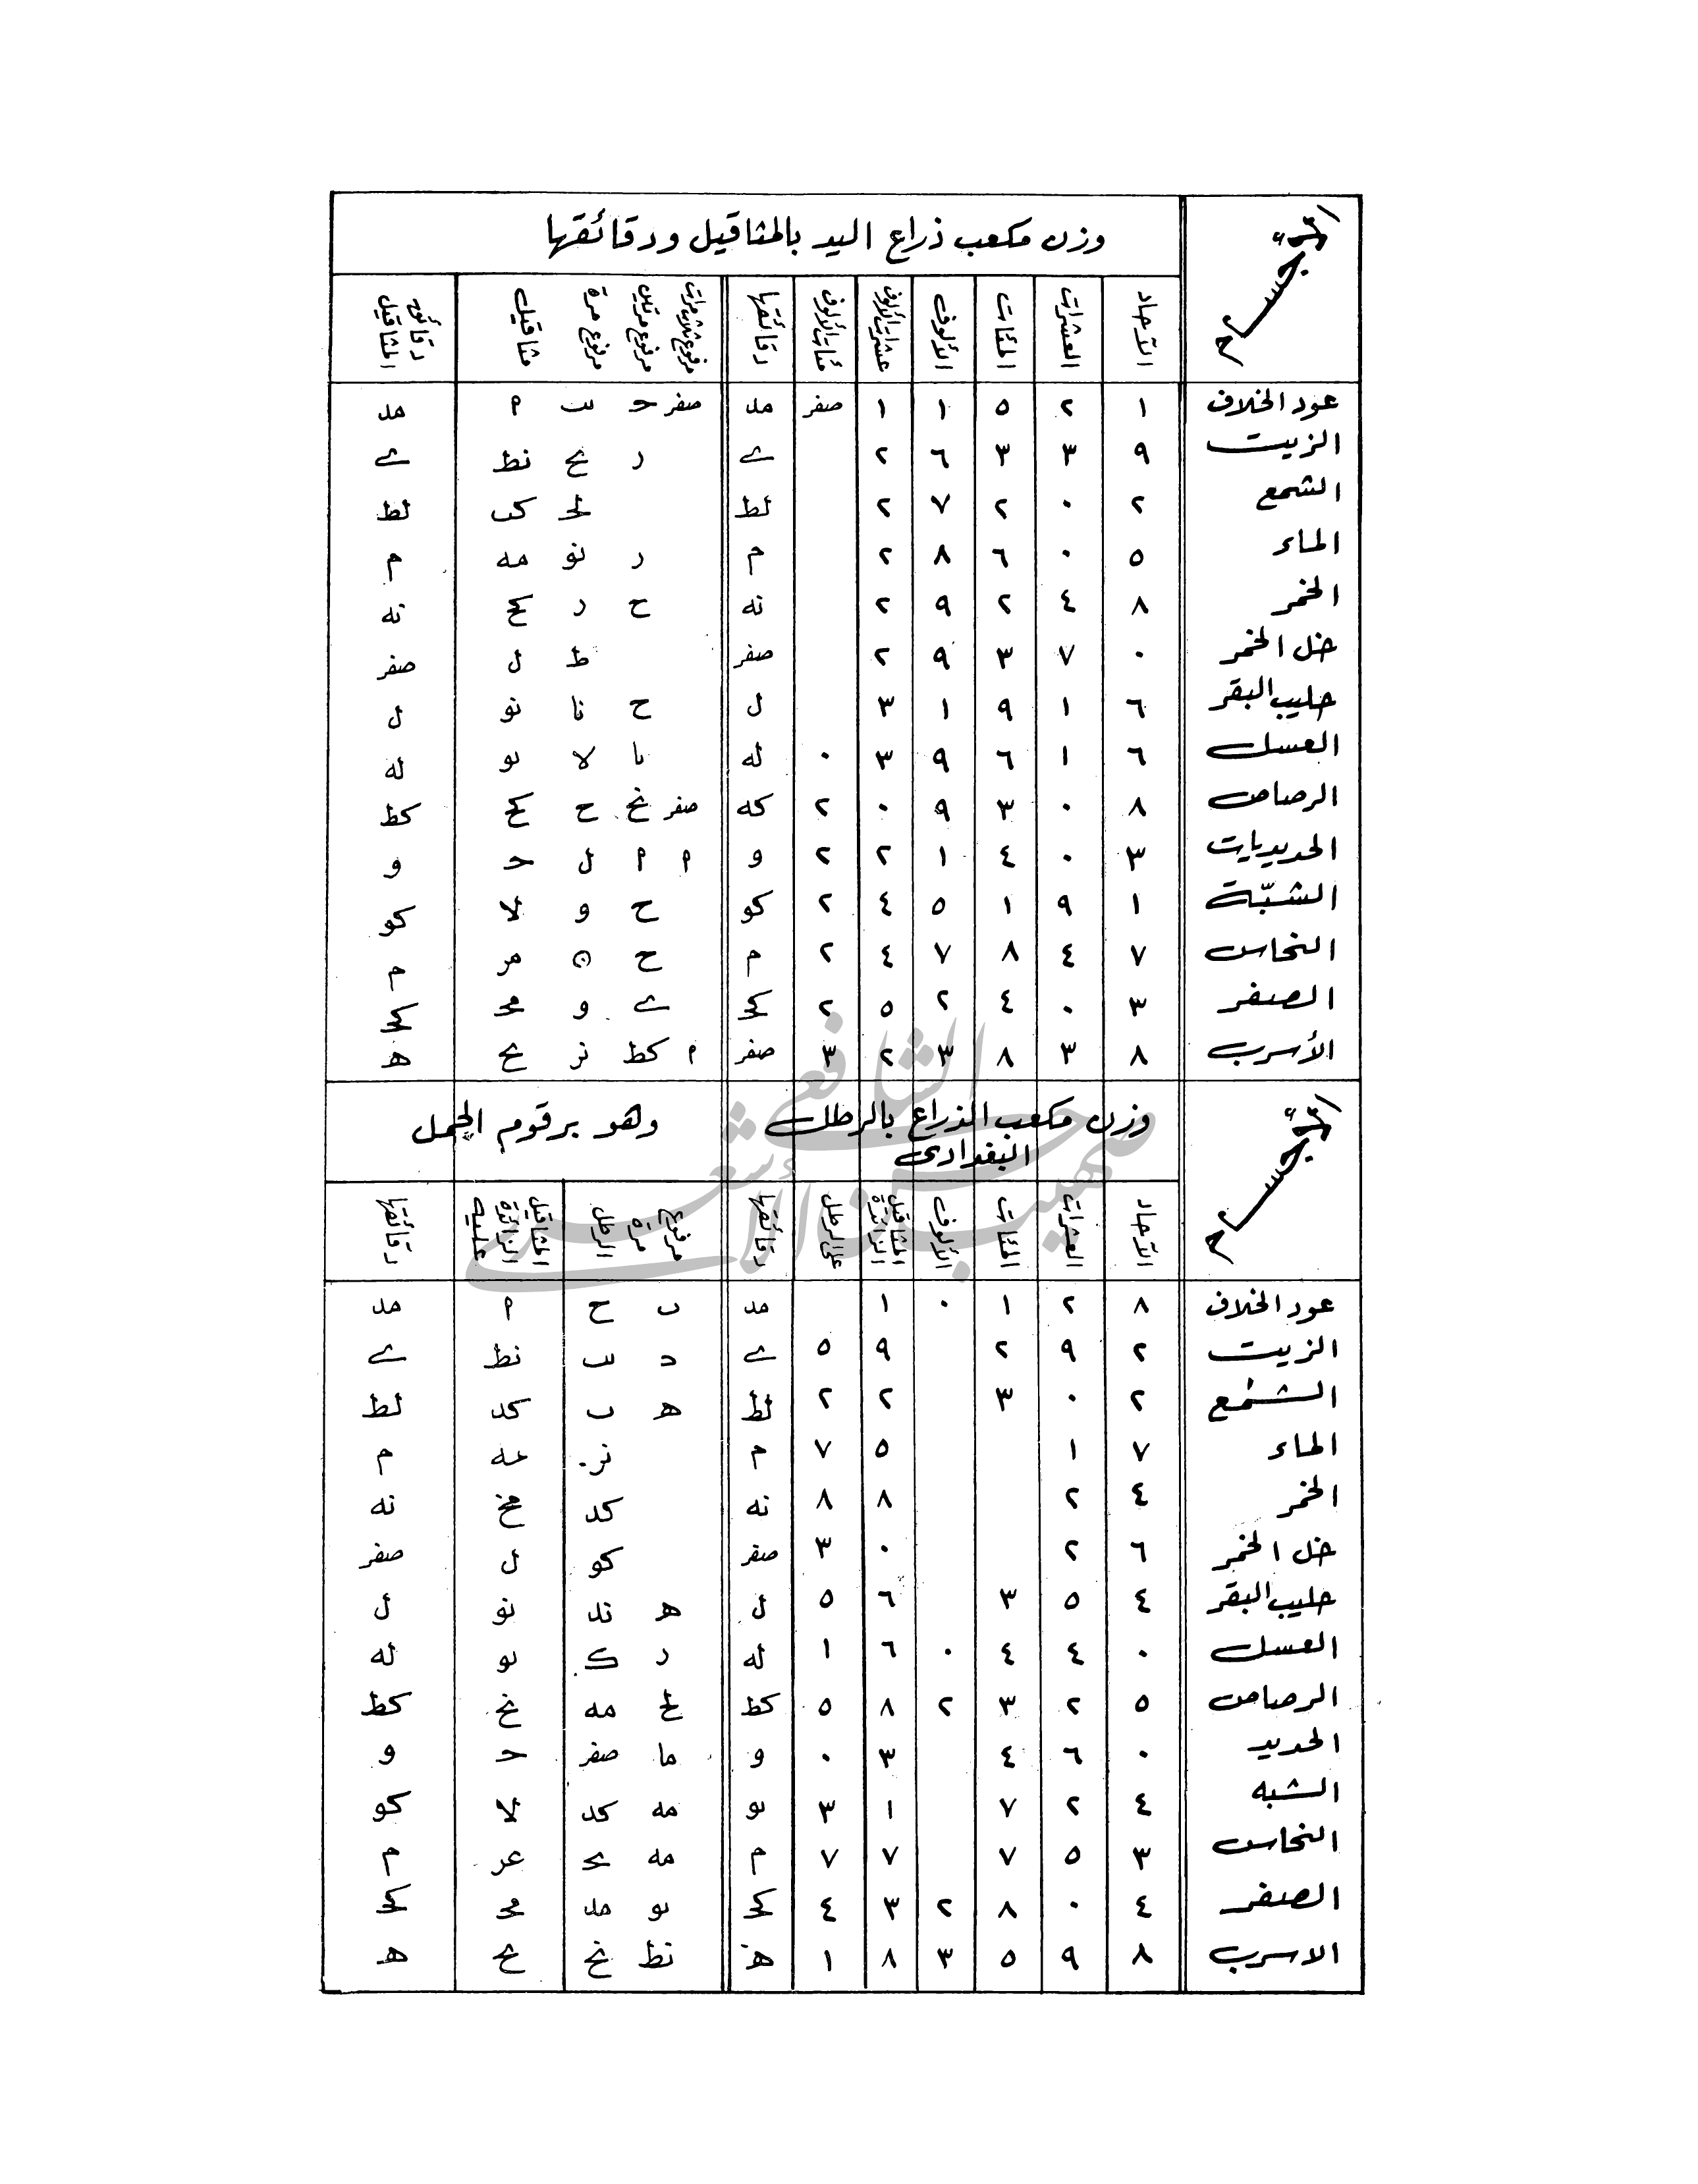 الأجسام
وزن مكعب ذراع اليد بالمثاقيل ودقائقها
الآحاد العشرات المئات الألوف عشرات الألوف مئات الألوف دقائقها مرفوع ثلاث مرات مرفوع مرتين مرفوع مرة مثاقيل دقائق المثاقيل
عود الخلاف ١ ٢ ٥ ١ ١ صفر مد صفر حـ ىىـ م مد
الزيت ٩ ٣ ٣ ٦ ٢ ے ر نط ے
الشمع ٢ ٠ ٢ ٧ ٢ لط كب لط
الماء ٥ ٠ ٦ ٨ ٢ م ر نو مه م
الخمر ٨ ٤ ٢ ٩ ٢ نه ح ر كح نه
خل الخمر ٠ ٧ ٣ ٩ ٢ صفر ط ل صفر
حليب البقر ٦ ١ ٩ ١ ٣ ل ح نا نو ل
العسل ٦ ١ ٦ ٩ ٣ ٠ له ىا لا ىو له
الرصاص ٨ ٠ ٣ ٩ ٠ ٢ كه صفر نح ح كح كط
الحديديات ٣ ٠ ٤ ١ ٢ ٢ و م م ل حـ و
الشبّة ١ ٩ ١ ٥ ٤ ٢ كو ح و لا كو
النحاس ٧ ٤ ٨ ٧ ٤ ٢ م ح مر م
الصفر ٣ ٠ ٤ ٢ ٥ ٢ كح ے و مح كح
الأسرب ٨ ٣ ٨ ٣ ٢ ٣ صفر م كط نر ھ
الأجسام
وزن مكعب الذراع بالرطل البغدادى
وهو برقوم الجمل
الآحاد العشرات المئات الألوف المثاقيل الزائدة على الرطل دقائقها مرفوع مرة الرطل المثاقيل الزائدة عليه دقائقها
عود الخلاف ٨ ٢ ١ ٠ ١ مد ب ح م مد
الزيت ٢ ٩ ٢ ٩ ٥ ے د ىىـ نط ے
الشمع ٢ ٠ ٣ ٢ ٢ لط ھ ب كد لط
الماء ٧ ١ ٥ ٧ م نر عه م
الخمر ٤ ٢ ٨ ٨ نه كد مح نه
خل الخمر ٦ ٢ ٠ ٣ صفر كو ل صفر
حليب البقر ٤ ٥ ٣ ٦ ٥ ل ھ ند نو ل
العسل ٠ ٤ ٤ ٠ ٦ ١ له ر ك ىو له
الرصاص ٥ ٢ ٣ ٢ ٨ ٥ كط لح مه نح كط
الحديد ٠ ٦ ٤ ٣ ٠ و ما صفر حـ و
الشبه ٤ ٢ ٧ ١ ٣ ىو مه كد لا كو
النحاس ٣ ٥ ٧ ٧ ٧ م مه عر م
الصفر ٤ ٠ ٨ ٢ ٣ ٤ كح ىو مد مح كح
الاسرب ٨ ٩ ٥ ٣ ٨ ١ ھ نط نح ھ